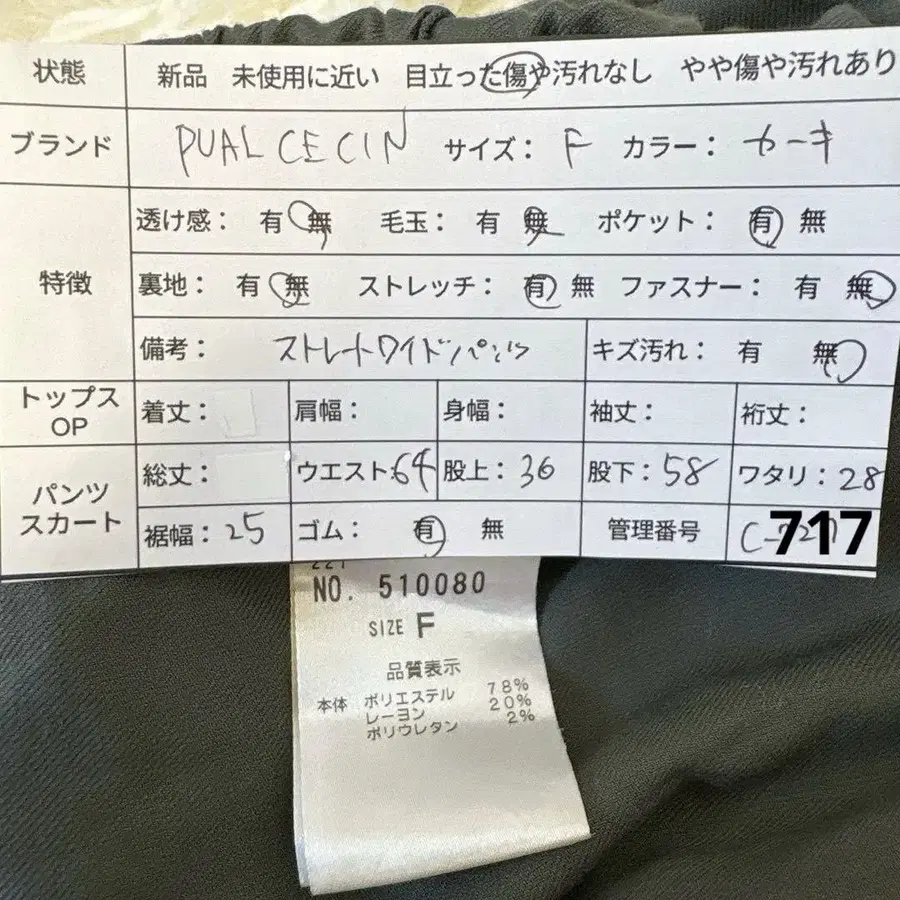 状態 新品 未使用に近い 目立った傷や汚れなし やや傷や汚れあり
ブランド PUAL CE CIN サイズ： F カラー： カーキ
特徴
透け感： 有 無 毛玉： 有 無 ポケット： 有 無
裏地： 有 無 ストレッチ： 有 無 ファスナー： 有 無
備考： ストレートワイドパンツ キズ汚れ： 有 無
トップス OP 着丈： 肩幅： 身幅： 袖丈： 裄丈：
パンツ スカート
総丈： ウエスト：64 股上：36 股下：58 ワタリ：28
裾幅：25 ゴム： 有 無 管理番号 C-717
221
NO. 510080
SIZE F
品質表示
本体 ポリエステル 78%
レーヨン 20%
ポリウレタン 2%